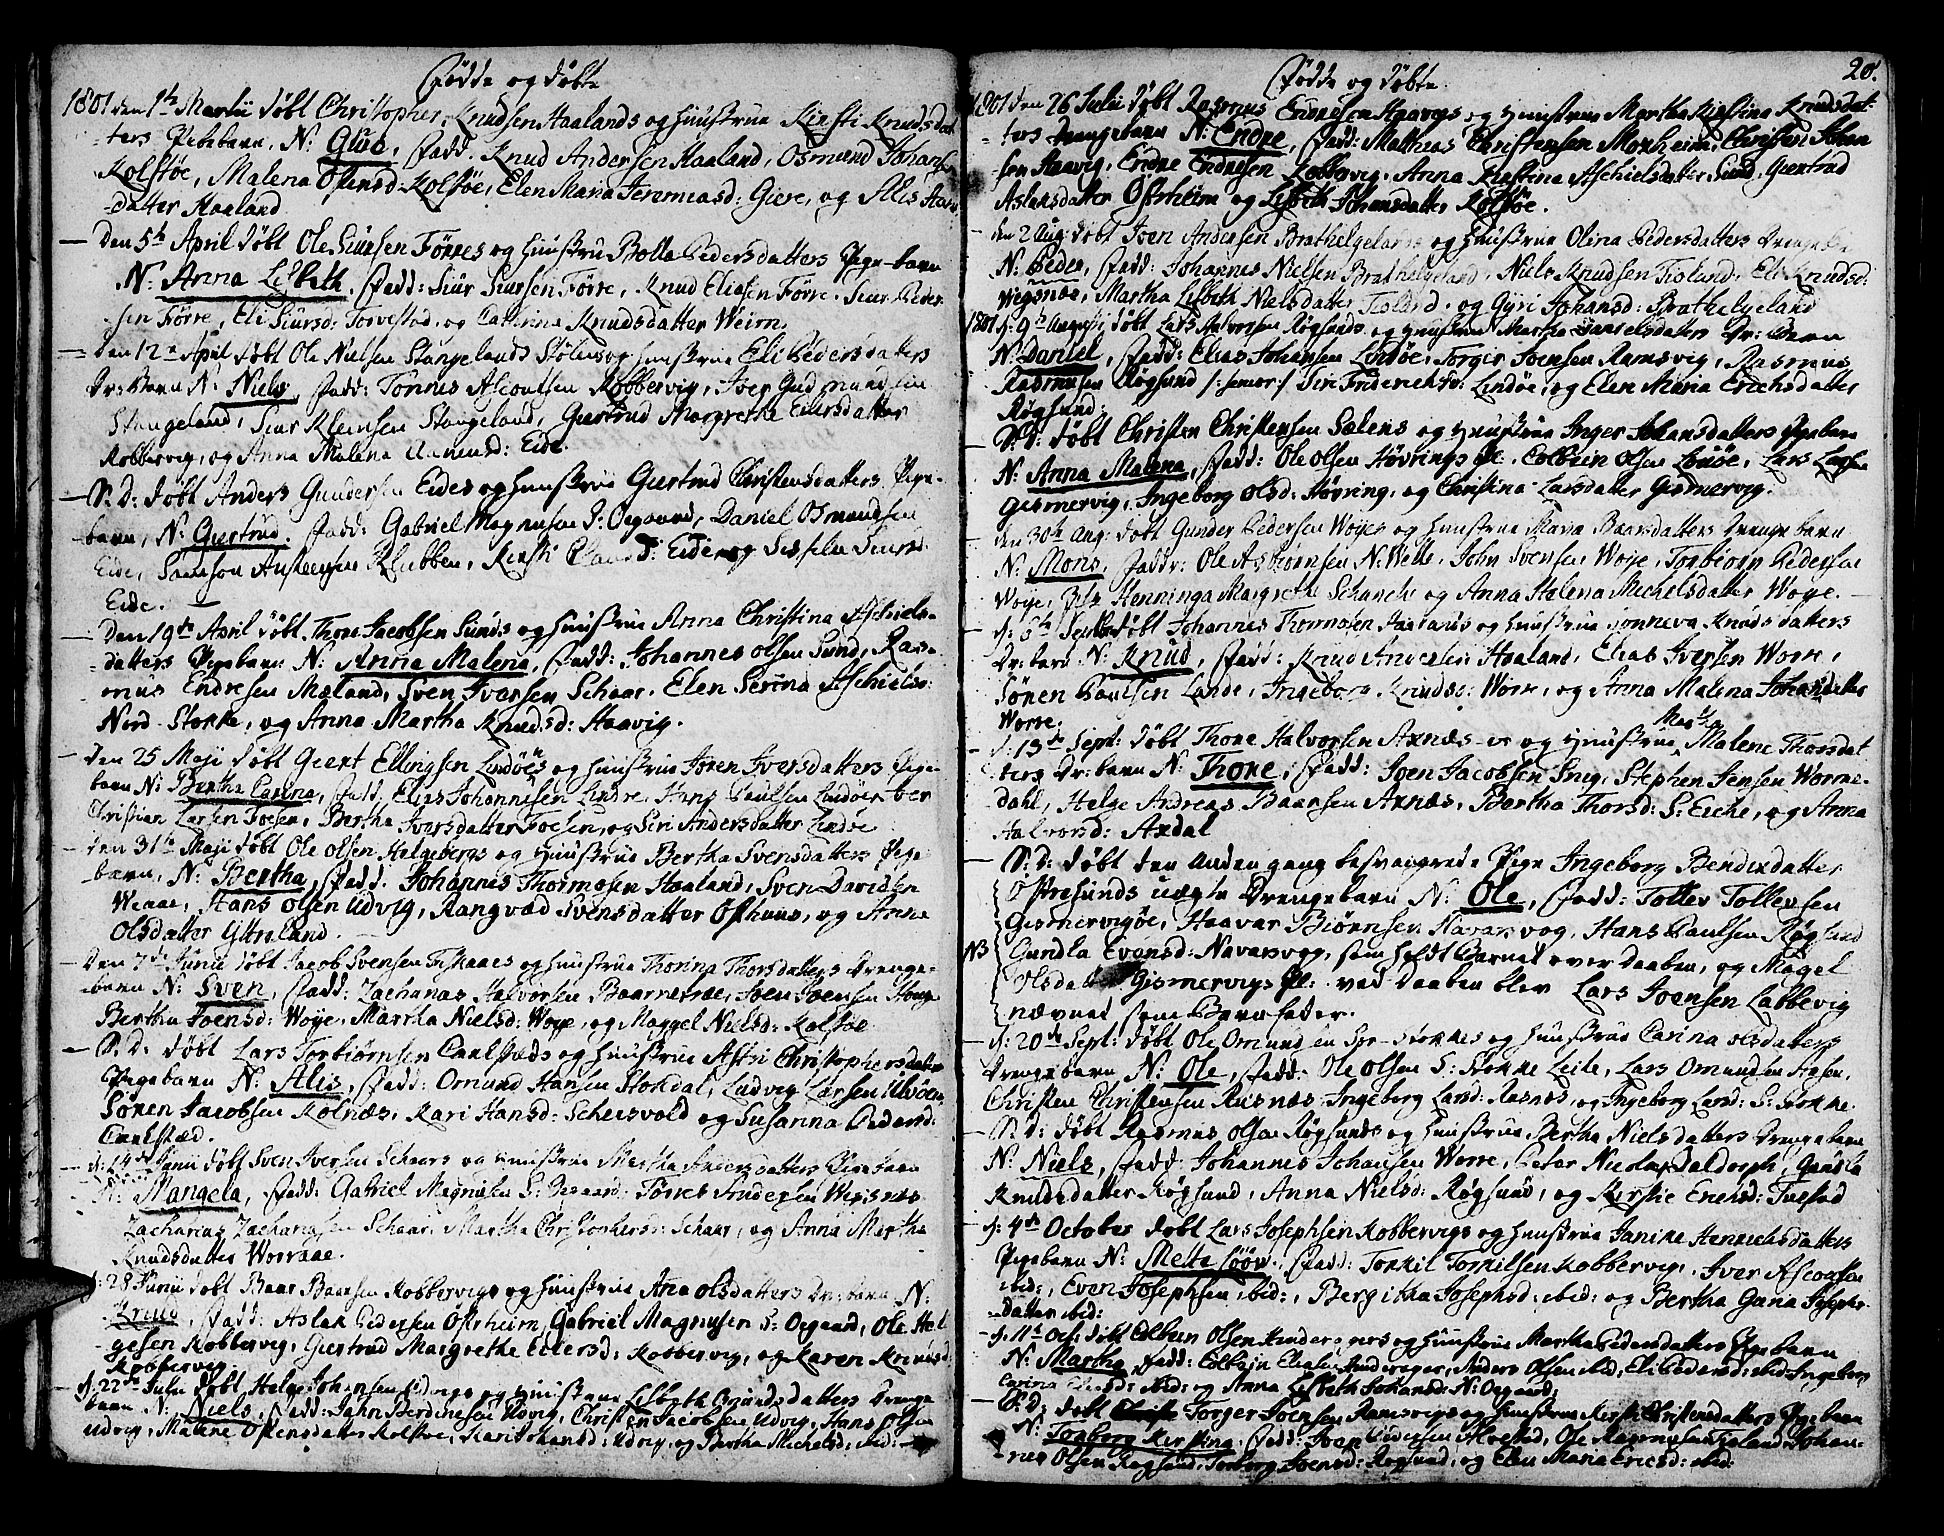 Fødde og Døbte
1801 den 1te Martii døbt Christopher Knudsen Haalands og Hustrue Kirsti Knudsdat-
ters Pigebarn, N: Giue, Fadd. Knud Andersen Haaland, Osmund Johansen
Kolstøe, Malena Ostensd: Kolstøe, Elen Maria Jeremiasd: Giere, og Alis Hans-
datter Haaland
Den 5te April døbt Ole Siursen Førres og Hustrue Bolla Pedersdatters Pige-barn
N: Anna Lisbeth. Fadd: Siur Siursen Førre, Knud Eliasen Førre. Siur Peder
sen Førre, Eli Siursd: Torvestad, og Cathrina Knudsdatter
Den 12te April døbt Ole Nielsen Stangelands og Hustrue Eli Pedersdatters
Dr: Barn N: Niels, Fadd: Tønnes Kobbervig, Iver Gudmundsen
Stangeland, Siur Stangeland, Giertrud Margretha Eilersdatter
Kobbervig, og Anna Malena Eide.
S: D: døbt Anders Gundersen Eides og Hustrue Giertrud Christensdatters Pige-
barn, N: Giertrud. Fadd: Gabriel Magnusen S: Oegaard, Daniel Osmundsen
Eide, Samson Klubben, Kirsti Eide og Siurd:
Eide.
Den 19te April døbt Thore Jacobsen Sunds og Hustrue Anna Christina Aschiels-
datters Pigebarn N: Anna Malena, Fadd: Johannes Olsen Sund, Ras-
mus Endresen Mæland, Sven Iversen Schaar. Elen Serina Aschielsd:
Nord-Stokke, og Anna Martha Knudsd: Haavig.
Den 25 Maji døbt Geert Ellingsen Lindøes og Hustrue Joren Iversdatters Pige-
barn N: Bertha Carina, Fadd. Elias Johannesen, Hans Paulsen
Christian Larsen Foesen, Bertha Iversdatter Foesen, og Siri Andersdatter Lindøe
den 31te Maji døbt Ole Olsen Helgebergs og Hustrue Bertha Svensdatters Pige-
barn, N: Bertha, Fadd. Johannes Thormosen Haaland, Sven Davidsen
Hans Olsen Udvig, Rangvad Svensdatter Østhuus, og Anna
Olsdatter Ytreland.
Den 7de Junii døbt Jacob Svensen og Hustrue Thorina Thorsdatters Drenge-
barn N: Sven, Fadd: Zacharias Halvorsen, Joen Joensen
Bertha Joensd: Woye, Martha Nielsd: Woye, og Maggel Nielsd: Kolstøe
S: D: døbt Lars Torbiørnsen og Hustrue Astri Christophersdatters
Pigebarn N: Alis, Fadd: Omund Hansen Stokdal, Ludvig Larsen
Søren Jacobsen Kolnæs, Kari Hansd: og Susanna Pedersd:
d: 14de Junii døbt Sven Iversen Schaars og Hustrue Martha Andersdatters Pigebarn
N: Mangela, Fadd: Gabriel Magnusen S: Oegaard, Torres
Zacharias Zachariasen Schaar, Martha Christophersd: Schaar, og Anna Martha
Knudsdatter
d: 28 Junii døbt Baar Baarsen Kobbervigs og Hustrue Ana Olsdatters Dr: barn N:
Knud, Fadd: Aslak Pedersen Østrheim, Gabriel Magnusen S: Oegaard, Ole Hel-
gesen Kobbervig, Giertrud Margrethe Eilersd: Kobbervig, og Karen Knudsd:
Kobbervig.
d: 22de Julii døbt Helge Johansen og Hustrue Lisbeth Omundsdatters Drenge-
barn N: Niels, Fadd: Udvig, Christen Jacobsen Udvig, Hans Olsen
Udvig, Malene Ostensdatter Kolstøe, Udvig, og Bertha Michelsd: ibid:
Fødde og Døbte
20.
1801 den 26 Julii døbt Rasmus Endresen Haavigs og Hustrue Martha Kirstina Knudsdat-
ters Drengebarn N: Endre, Fadd: Mathias Christensen Moxheim, Christen Johan
sen Haavig, Endre Endresen Kobbervig, Anna Kirstina Aschielsdatter Sund, Giertrud
Aslaksdatter Østrheim og Lisbeth Johansdatter Kolstøe.
den 2 Aug: døbt Joen Andersen Brathelgelands og Hustrue Olina Pedersdatters
N: Peder, Fadd: Johannes Nielsen Brathelgeland, Niels Knudsen, Eli Knudsd:
Martha Lisbeth Nielsdatter, og Gyri Johansd: Brathelgeland
1801 d: 9de Augusti døbt Lars Halvorsen Røgsunds og Hustrue Martha Danielsdatters Dr: Barn
N: Daniel, Fadd: Elias Johansen Lindøe, Torger Joensen Ramsvig, Rasmus
Rasmusen Røgsund /: senior :/ Siri Friderichsd: Lindøe, og Elen Maria Erichsdatter
Røgsund.
S: D: døbt Christen Christensen Salens og Hustrue Inger Johansdatters Pigebarn
N: Anna Malena, Fadd: Ole Olsen Høvring, Colbein Olsen, Lars Larsen
Gismervig, Ingeborg Olsd: Høvring, og Christina Larsdatter Gismervig.
den 30te Aug: døbt Gunder Pedersen Woyes og Hustrue Maria Baarsdatters Drengebarn
N: Mons, Fadd: Ole Asbiørnsen, John Svensen Woye, Torbiørn Pedersen
Woye, Henninga Margretha Schanche og Anna Malena Michelsdatter Woye.
d: 6te Septbr døbt Johannes Thormosen Haalands og Hustrue Sønneva Knudsdatters
Dr: barn N: Knud, Fadd: Knud Andersen Haaland, Elias Iversen Worre,
Sønen Paulsen Lande, Ingeborg Knudsd: Worre, og Anna Malena Johansdatter
Worre.
d: 13de Sept: døbt Thore Halvorsen Axnæs og Hustrue Martha Malene Thorsdat
ters Dr: barn N: Thore, Fadd: Joen Jacobsen, Stephen Jensen Worme-
dahl, Helge Andreas Baarsen Axnæs, Bertha Thorsd: S: Eiche, og Anna
Halvorsd: Axdal
S: D: døbt den anden gang besvangrede Pige Ingeborg Bendixdatter
Østresunds uægte Drengebarn N: Ole, Fadd: Tollev Tollevsen
Gismervigøe, Haavar Biørnsen Havarsvog, Hans Paulsen Røgsund
NB Gundla Evensd: Navarsvog, som holdt Barnet over Daaben, og Magel
Olsdatter Gismervig: ved Daaben blev Lars Joensen Labbevig
nævnet som Barnefader.
d: 20de Sept: døbt Ole Omundsen og Hustrue Carina Olsdatters
Drengebarn N: Ole, Fadd: Ole Olsen S: Stokke, Lars Omundsen
Christen Christensen, Ingeborg Larsd:, og Ingeborg Larsd: S: Stokke.
S: D: døbt Rasmus Olsen Røgsunds og Hustrue Bertha Nielsdatters Drengebarn
N: Niels, Fadd: Johannes Johansen Worre, Peter Nicolay Daldorph, Gundla
Knudsdatter Røgsund, Anna Nielsd: Røgsund, og Kirstie Erichsd: Tuestad
d: 4de October døbt Lars Josephsen Kobbervigs og Hustrue Janike Henrichsdatters
Pigebarn N: Mette, Fadd: Torkil Torkilsen Kobbervig, Iver
ibid:, Even Josephsen ibid:, Bergitha Josephsd: ibid: og Bertha Gana Joseph-
datter ibid:
d: 11te Oct: døbt Colbein Olsen og Hustrue Martha Pedersdatters Pigebarn
N: Martha, Fadd: Colbein, Anders Olsen ibid, Eli Pedersd: ibid: Ingeborg
Carina ibid: og Anna Lisbeth Johansd: N: Oegaard.
S: D: døbt Torger Joensen Ramsvigs og Hustrue Kirsti Christensdatters Pigebarn
N: Torborg Kirstina. Fadd: Iver, Ole Rasmusen, Johan-
nes Olsen Røgsund, Joensd: Røgsund, og Elen Maria Ericsd: ibid: